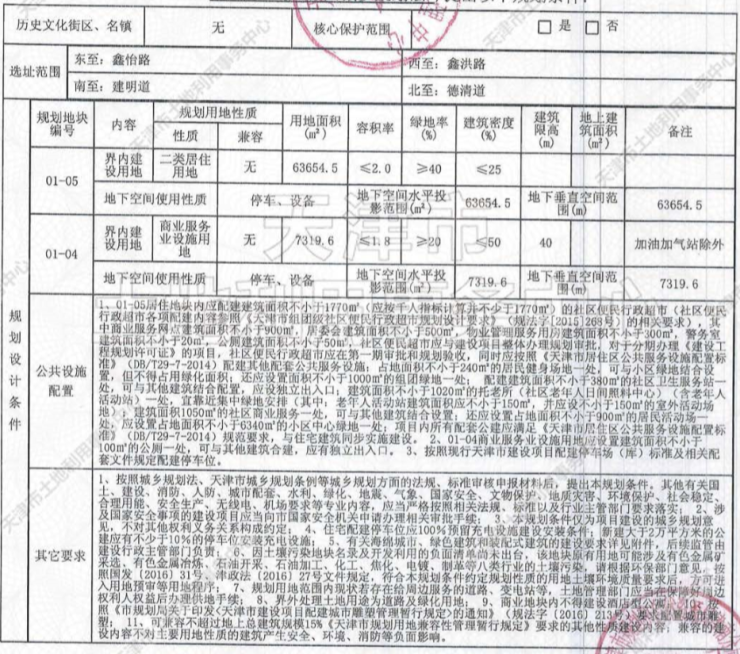 历史文化街区、名镇 无 核心保护范围 □ 是 □ 否
选址范围 东至：鑫怡路 西至：鑫洪路
南至：建明道 北至：德清道
规划设计条件
规划地块编号 内容 规划用地性质 用地面积(㎡) 容积率 绿地率(%) 建筑密度(%) 建筑限高(m) 地上建筑面积(㎡) 备注
性质 兼容
01-05 界内建设用地 二类居住用地 无 63654.5 ≤2.0 ≥40 ≤25
地下空间使用性质 停车、设备 地下空间水平投影范围(㎡) 63654.5 地下垂直空间范围(m) 63654.5
01-04 界内建设用地 商业服务业设施用地 无 7319.6 ≤1.8 ≥20 ≤50 40 加油加气站除外
地下空间使用性质 停车、设备 地下空间水平投影范围(㎡) 7319.6 地下垂直空间范围(m) 7319.6
公共设施配置
1、01-05居住地块内应配建建筑面积不小于1770㎡（应按千人指标计算并不少于1770㎡）的社区便民行政超市（社区便民
行政超市各项配建内容参照《天津市组团级社区便民行政超市规划设计要求》（规法字[2015]268号）的相关要求），其
中商业服务网点建筑面积不小于900㎡，居委会建筑面积不小于500㎡，物业管理服务用房建筑面积不小于300㎡，警务室
建筑面积不小于20㎡，公厕建筑面积不小于50㎡，社区便民超市应与建设项目整体办理规划审批，对于分期办理《建设工
程规划许可证》的项目，社区便民行政超市应在第一期审批和规划验收，同时应按照《天津市居住区公共服务设施配置标
准》（DB/T29-7-2014）配建其他配套公共服务设施；占地面积不小于240㎡的居民健身场地一处，可与小区绿地结合设
置，但不得占用绿化面积，还应设置面积不小于1000㎡的组团绿地一处； 配建建筑面积不小于380㎡的社区卫生服务站一
处，可与其他建筑结合配置，应设独立出入口；建筑面积不小于1020㎡的托老所（社区老年人日间照料中心）（含老年人
活动站）一处，宜靠近集中绿地安排（其中，老年人活动站建筑面积应不小于150㎡，并应设不小于150㎡的室外活动场
地）；建筑面积1050㎡的社区商业服务一处，可与其他建筑结合设置；还应设置占地面积不小于1000㎡的居民活动场一
处，应设置占地面积不小于6340㎡的小区中心绿地一处；项目内所有配套公建应满足《天津市居住区公共服务设施配置标
准》（DB/T29-7-2014）规范要求，与住宅建筑同步实施建设。 2、01-04商业服务业设施用地应设置建筑面积不小于
100㎡的公厕一处，可与其他建筑合建，应有独立出入口。 3、按照现行天津市建设项目配建停车场（库）标准及相关配
套文件规定配建停车位。
其它要求
1、按照城乡规划法、天津市城乡规划条例等城乡规划方面的法规、标准审核申报材料后，提出本规划条件，其他有关国
土、建设、消防、人防、城市配套、水利、绿化、地震、气象、国家安全、文物保护、地质灾害、环境保护、社会稳定、
合理用能、安全生产、无线电、机场要求等专业内容，应当严格按照相关法规、标准以及行业主管部门要求落实； 2、涉
及国家安全事项的建设项目应当向市国家安全机关申请办理相关审批手续； 3、本规划条件仅为项目建设的城乡规划意
见，不对其他权利义务关系构成约定； 4、住宅配建停车位应100%预留充电设施建设安装条件； 新建大于2万平方米的公
建应有不少于10%的停车位安装充电设施； 5、有关海绵城市、绿色建筑和装配式建筑的建设要求详见附件，后续监管由
建设行政主管部门负责； 6、因土壤污染地块名录及开发利用的负面清单尚未出台，该地块原有用地可能涉及有色金属矿
采选、有色金属冶炼、石油开采、石油加工、化工、焦化、电镀、制革等八类行业的土壤污染，请根据环保部门意见，按
照国发（2016）31号、津政法（2016）27号文件规定，符合本规划条件约定规划性质的用地土壤环境质量要求后，方可进
入用地预审等用地程序； 7、规划用地范围内现状若存在给周边服务的道路、变电站等，土地管理部门应当在保障好周边
权利人权益后办理供地手续； 8、界外处理土地用途为道路及绿化用地； 9、商业地块内不得建设酒店型公寓； 10、按
照《市规划局关于印发<天津市建设项目配建城市雕塑管理暂行规定>的通知》（规法字[2016]213号）要求配置城市雕
塑； 11、可兼容不超过地上总建筑规模15%《天津市规划用地兼容性管理暂行规定》要求的其他性质建设内容；兼容的建
设内容不对主要用地性质的建筑产生安全、环境、消防等负面影响。
天津市土地利用事务中心